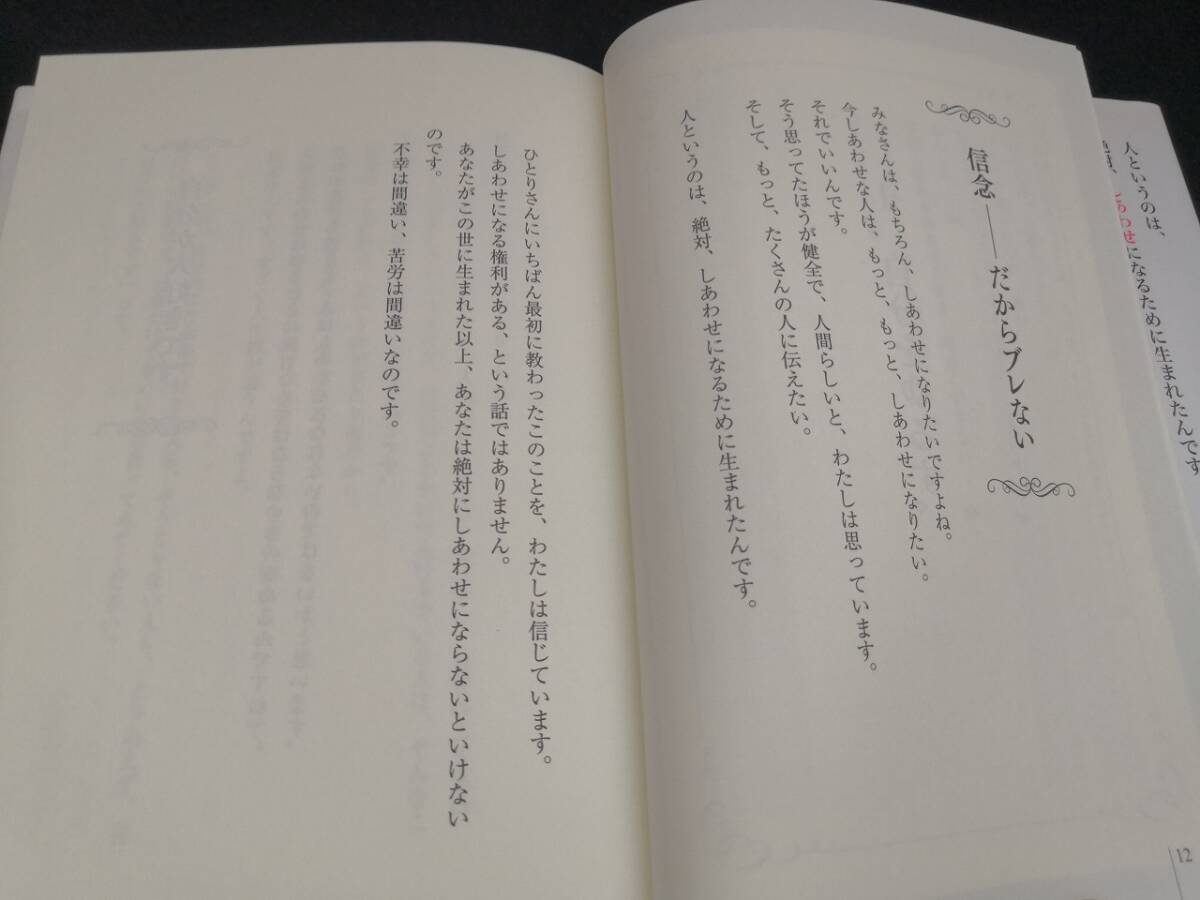 人というのは、
しあわせになるために生まれたんです
12
信念――だからブレない
みなさんは、もちろん、しあわせになりたいですよね。
今しあわせな人は、もっと、もっと、しあわせになりたい。
それでいいんです。
そう思ってたほうが健全で、人間らしいと、わたしは思っています。
そして、もっと、たくさんの人に伝えたい。
人というのは、絶対、しあわせになるために生まれたんです。
ひとりさんにいちばん最初に教わったこのことを、わたしは信じています。
しあわせになる権利がある、という話ではありません。
あなたがこの世に生まれた以上、あなたは絶対にしあわせにならないといけない
のです。
不幸は間違い、苦労は間違いなのです。